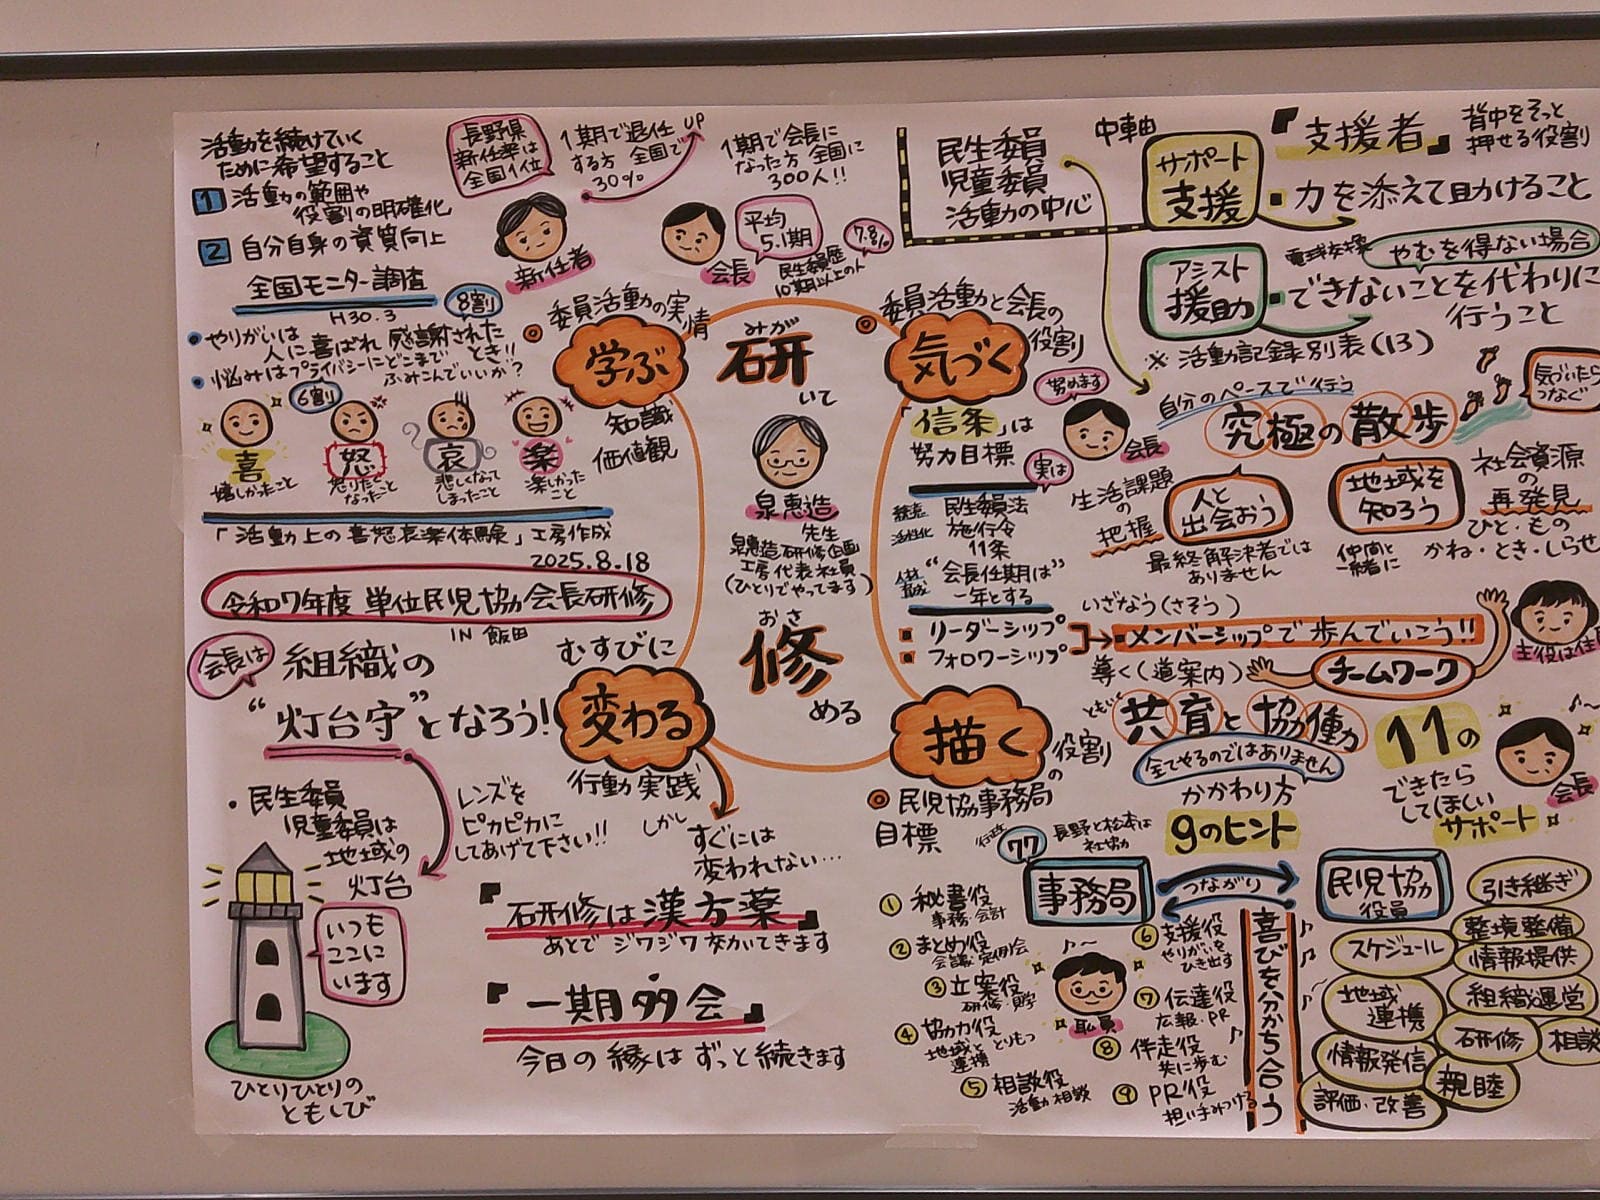 活動を続けていく
ために希望すること
1 活動の範囲や
役割の明確化
2 自分自身の資質向上
全国モニター調査
H30.3
8割
・やりがいは
人に喜ばれ 感謝された
とき!!
・悩みはプライバシーにどこまで
ふみこんでいいか?
6割
喜
嬉しかったこと
怒
怒りたく
なったこと
哀
悲しくなって
しまったこと
楽
楽しかった
こと
「活動上の喜怒哀楽体験」工房作成
2025.8.18
令和7年度 単位民児協会長研修
IN 飯田
長野県
新任率は
全国1位
1期で退任
する方 全国で
30%
UP
新任者
1期で会長に
なった方 全国に
300人!!
会長
平均
5.1期
7.8%
民生委員歴
10期以上の人
◎委員活動の実情
学ぶ
知識
価値観
みが
研
いて
泉惠造
先生
泉惠造研修企画
工房代表社員
(ひとりでやってます)
おさ
修
める
◎委員活動と会長の
役割
気づく
民生委員
児童委員
活動の中心
中軸
サポート
支援
『支援者』
背中をそっと
押せる役割
・力を添えて助けること
アシスト
援助
電球交換
やむを得ない場合
・できないことを代わりに
行うこと
※活動記録別表(13)
「信条」は
努力目標
努めます
会長
実は
民生委員法
施行令
11条
"会長任期は"
一年とする
自分のペースで行う
究極の散歩
気づいたら
つなぐ
生活課題
の
把握
人と
出会おう
地域を
知ろう
社会資源
の
再発見
最終解決者では
ありません
仲間と
一緒に
ひと・もの
かね・とき・しらせ
いざなう(さそう)
・リーダーシップ
・フォロワーシップ
・メンバーシップで歩んでいこう!!
導く(道案内)
チームワーク
会長は
組織の
"灯台守"となろう!
むすびに
変わる
行動実践
しかし
すぐには
変われない…
・民生委員
児童委員は
地域の
灯台
レンズを
ピカピカに
してあげて下さい!!
いつも
ここに
います
ひとりひとりの
ともしび
『研修は漢方薬』
あとで ジワジワ効いてきます
『一期多会』
今日の縁はずっと続きます
描く
役割
の
◎民児協事務局
目標
ともに
共育と協働
全てやるのではありません
かかわり方
11の
できたら
してほしい
サポート
会長
行政
77
長野と松本は
社協
9のヒント
事務局
つながり
民児協
役員
①秘書役
事務・会計
②まとめ役
会議・定例会
③立案役
研修
④協力役
地域と
連携
とりもつ
⑤相談役
活動相談
職員
⑥支援役
やりがいを
ひき出す
⑦伝達役
広報・PR
⑧伴走役
共に歩む
⑨PR役
担い手みつける
喜びを分かち合う
引き継ぎ
スケジュール
整境整備
情報提供
地域
連携
組織運営
研修
相談
情報発信
親睦
評価・改善